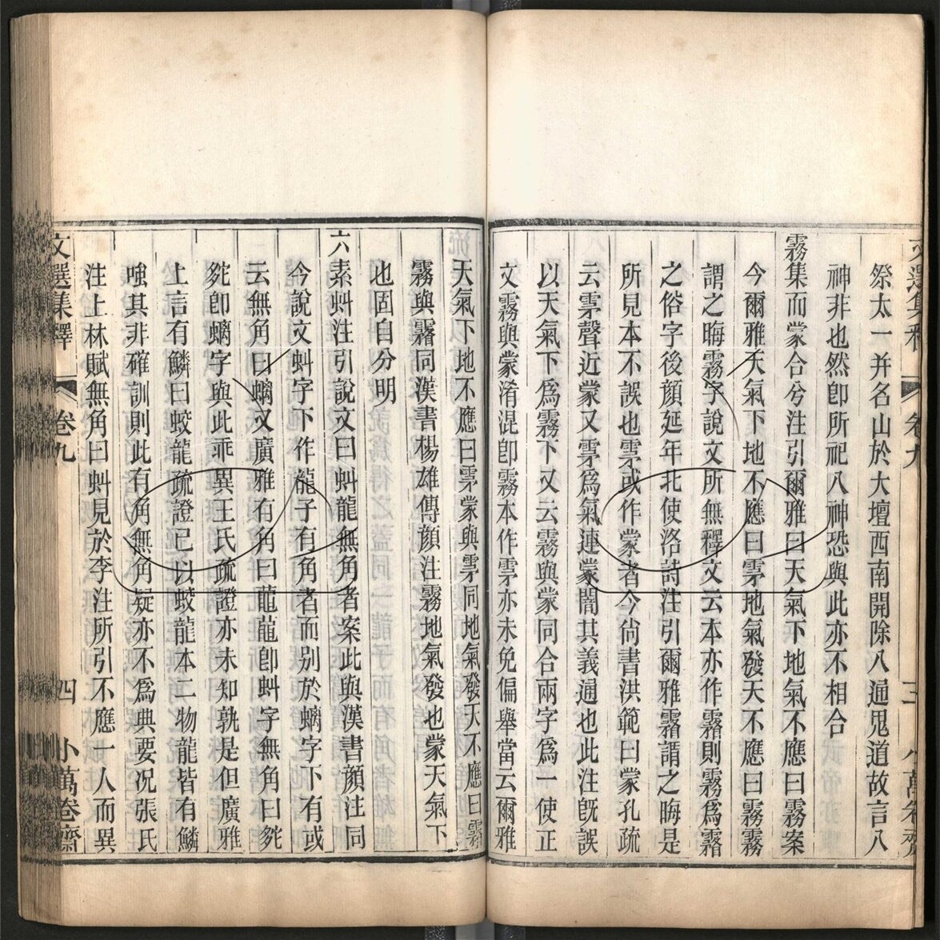 祭太一并名山於大壇西南開除八通鬼道故言八
神非也然卽所祀八神恐與此亦不相合
霧集而蒙合兮注引爾雅曰天氣下地氣不應曰霧案
今爾雅天氣下地不應曰雺地氣發天不應曰霧霧
謂之晦霧字說文所無釋文云本亦作霿則霧爲霿
之俗字後顏延年北使洛詩注引爾雅霿謂之晦是
所見本不誤也雺或作蒙者今尙書洪範曰蒙孔疏
云雺聲近蒙又雺爲氣連蒙闇其義通也此注旣誤
以天氣下爲霧下又云霧與蒙同合兩字爲一使正
文霧與蒙淆混卽霧本作雺亦未免偏舉當云爾雅
天氣下地不應曰雺蒙與雺同地氣發天不應曰霧
霧與霿同漢書楊雄傳顏注霧地氣發也蒙天氣下
也固自分明
六素虯注引說文曰虯龍無角者案此與漢書顏注同
今說文虯字下作龍子有角者而別於螭字下有或
云無角曰螭又廣雅有角曰𪚔龍卽虯字無角曰𪚲
𪚲卽螭字與此乖異王氏疏證亦未知孰是但廣雅
上言有鱗曰蛟龍疏證已以蛟龍本二物龍皆有鱗
嗤其非確訓則此有角無角疑亦不爲典要况張氏
注上林賦無角曰虯見於李注所引不應一人而異
文選集釋
卷九
四
小萬卷齋